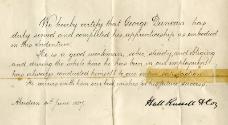 We hereby certify that George Duncan has
duly served and completed his apprenticeship as embodied
in this Indenture.
He is a good workman, sober, steady, and obliging
and during the whole time he has been in our employment
has always conducted himself to our entire satisfaction.
He carries with him our best wishes for his future success.
Aberdeen June
Hall Russell & Co